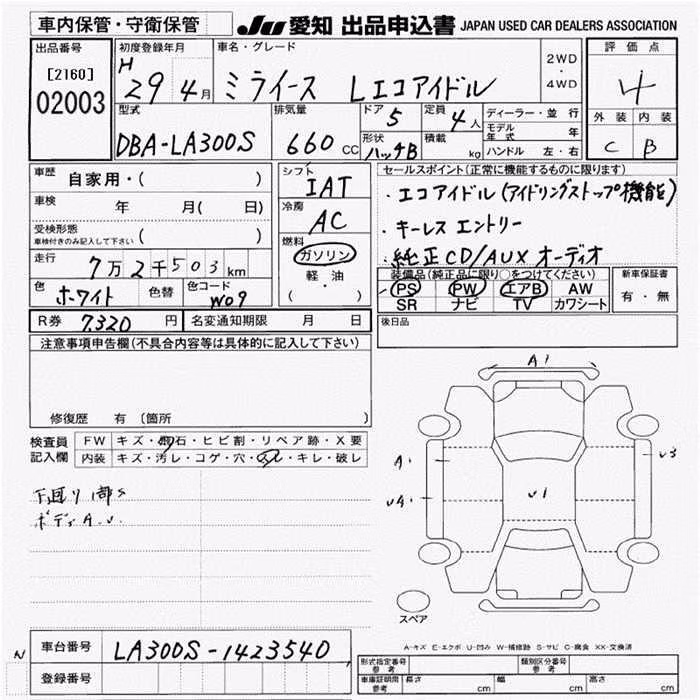 車内保管・守衛保管
JU 愛知 出品申込書 JAPAN USED CAR DEALERS ASSOCIATION
出品番号
[2160]
02003
初度登録年月
H 29 4月
車名・グレード
ミライース Lエコアイドル
2WD
・
4WD
評価点
4
外装 内装
C B
型式
DBA-LA300S
排気量
660 CC
ドア 5
形状 ハッチB
定員 4 人
積載 kg
ディーラー・並行
モデル年式 年
ハンドル 左・右
車歴 自家用・( )
車検 年 月( 日)
受検形態
車検付きのみ記入して下さい ( )
走行 7万2千503km
色 ホワイト 色替 色コード W09
シフト
IAT
冷房
AC
燃料
ガソリン
軽・油
( ・ )
セールスポイント(正常に機能するものに限ります)
・エコアイドル(アイドリングストップ機能)
・キーレスエントリー
・純正CD/AUXオーディオ
装備品(純正品に限り○をつけてください)
PS PW エアB AW
SR ナビ TV カワシート
新車保証書
有・無
R券 7320 円 名変通知期限 月 日
後日品
注意事項申告欄(不具合内容等は具体的に記入して下さい)
修復歴 有 〔箇所 〕
検査員記入欄
FW キズ・飛石・ヒビ割・リペア跡・X要
内装 キズ・汚レ・コゲ・穴・スレ・キレ・破レ
下廻り 1部S
ボディA.U.
A1
A1
U4
U1
U3
スペア
A-キズ E-エクボ U-凹み W-補修跡 S-サビ C-腐食 XX-交換済
N
車台番号 LA300S-1423540
登録番号
形式指定番号 参考 類別区分番号 参考
車庫証明用 参考 長さ cm 幅 cm 高さ cm